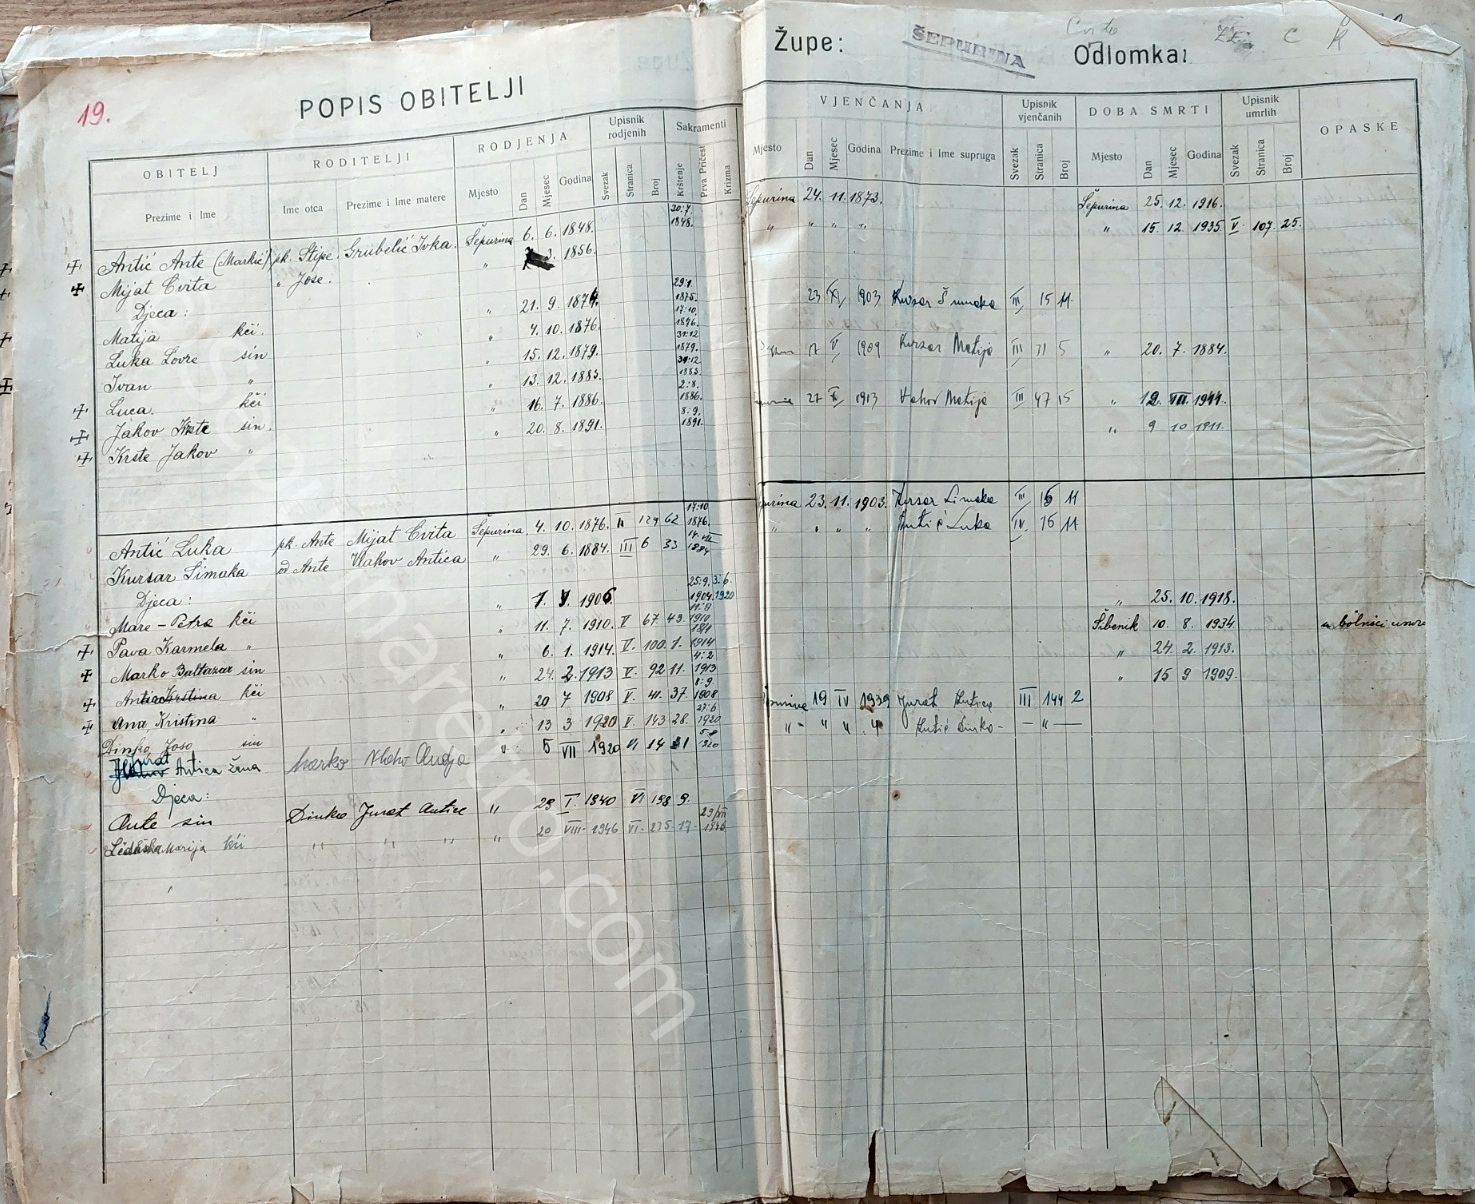 19.
POPIS OBITELJI
Župe: ŠEPURINA Odlomka:
OBITELJ RODITELJI RODJENJA Upisnik rodjenih Sakramenti VJENČANJA Upisnik vjenčanih DOBA SMRTI Upisnik umrlih OPASKE
Prezime i Ime Ime otca Prezime i Ime matere Mjesto Dan Mjesec Godina Svezak Stranica Broj Krštenje Prva Pričest Krizma Mjesto Dan Mjesec Godina Prezime i Ime supruga Svezak Stranica Broj Mjesto Dan Mjesec Godina Svezak Stranica Broj
Antić Ante (Markić) pk. Stipe. Grubelić Ivka. Šepurina 6. 6. 1848. 20.7. 1848. Šepurina 24. 11. 1873. Šepurina 25. 12. 1916.
Mijat Cvita " Jose. " 1856. " " " " " 15. 12. 1935 V 107 25.
Djeca:
Matija kći. " 21. 9. 1874. 29.1. 1875. 
Luka Lovre sin " 4. 10. 1876. 17.10. 1876. 23 XI 1903 Kursar Šimaka III 15 11
Ivan " " 15. 12. 1879. 31.12. 1879.
Luca. kći " 13. 12. 1883. 31.12. 1883. 17 V 1909 Kursar Matija III 71 5 " 20. 7. 1884.
Jakov Krste sin. " 16. 7. 1886. 2.8. 1886. 27 1913 Vlahov Matija III 47 15 " 12. VII. 1944.
Krste Jakov " " 20. 8. 1891. 8.9. 1891. " 9 10 1911.
Antić Luka pk. Ante Mijat Cvita Šepurina 4. 10. 1876. II 129 62 17.10 1876. 23. 11. 1903. Kursar Šimaka III 15 11
Kursar Šimaka od Ante Vlahov Antica " 29. 6. 1884. III 6 33 14. VII 1884 " " " " Antić Luka IV 15 11
Djeca:
Mare - Petra kći " 7. V. 1905. 25.9. 1904. 3. 6. 1920
Pava Karmela " " 11. 7. 1910. V 67 43. 1910 " 25. 10. 1918.
Marko Baltazar sin " 6. 1. 1914. V. 100. 1. 1914 Šibenik 10. 8. 1934 u bolnici umro
Antica Kristina kći " 24. 2. 1913 V. 92 11. 4.2. 1913 " 24. 2. 1913.
Ana Kristina " " 20 7 1908 V. 41. 37. 8.9 1908 " 15 9 1909.
Dinko Joso sin " 13 3 1920 V. 143 28. 27.6 1920 19 IV 1939 Jurat Antica III 144 2
Jurat Antica žena Marko Vlahov Andja " 5 VII 1920 VI 14 31 5.8 1920 " " " " Antić Dinko - — " —
Djeca:
Ante sin Dinko Jurat Antice " 29 I. 1940 VI 198 9.
Marija kći " " " " 20 VIII. 1946 VI. 235. 17. 29/XII 1946